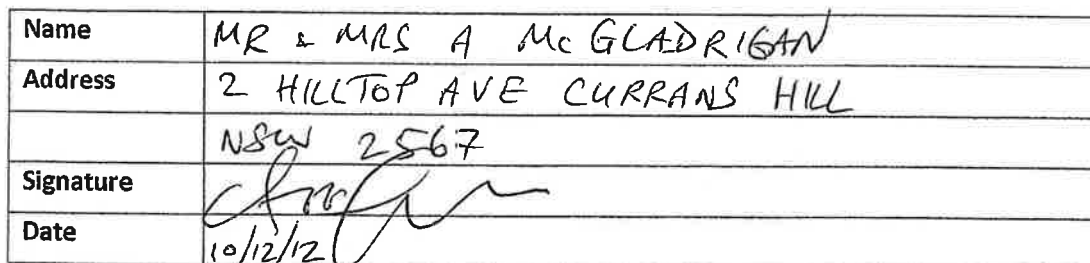 Name MR & MRS A McGLADRIGAN
Address 2 HILLTOP AVE CURRANS HILL
NSW 2567
Signature
Date 10/12/12